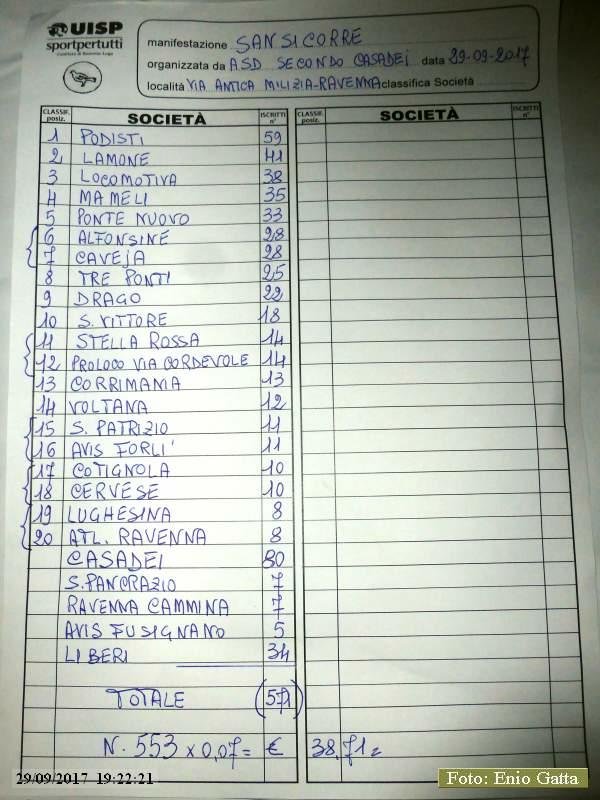 UISP
sportpertutti
manifestazione SANSICORRE
organizzata da ASD SECONDO CASADEI data 29-09-2017
località VIA ANTICA MILIZIA-RAVENNA classifica Società
CLASSIF. posiz. SOCIETÀ ISCRITTI n° CLASSIF. posiz. SOCIETÀ ISCRITTI n°
1 PODISTI 59
2 LAMONE 41
3 LOCOMOTIVA 38
4 MAMELI 35
5 PONTE NUOVO 33
6 ALFONSINE 28
7 CAVEJA 28
8 TRE PONTI 25
9 DRAGO 22
10 S. VITTORE 18
11 STELLA ROSSA 14
12 PROLOCO VIA CORDEVOLE 14
13 CORRIMANIA 13
14 VOLTANA 12
15 S. PATRIZIO 11
16 AVIS FORLI' 11
17 COTIGNOLA 10
18 CERVESE 10
19 LUGHESINA 8
20 ATL. RAVENNA 8
CASADEI 80
S. PANCRAZIO 7
RAVENNA CAMMINA 7
AVIS FUSIGNANO 5
LIBERI 34
TOTALE (571)
N. 553 x 0,07 = € 38,71 =
29/09/2017 19:22:21
Foto: Enio Gatta